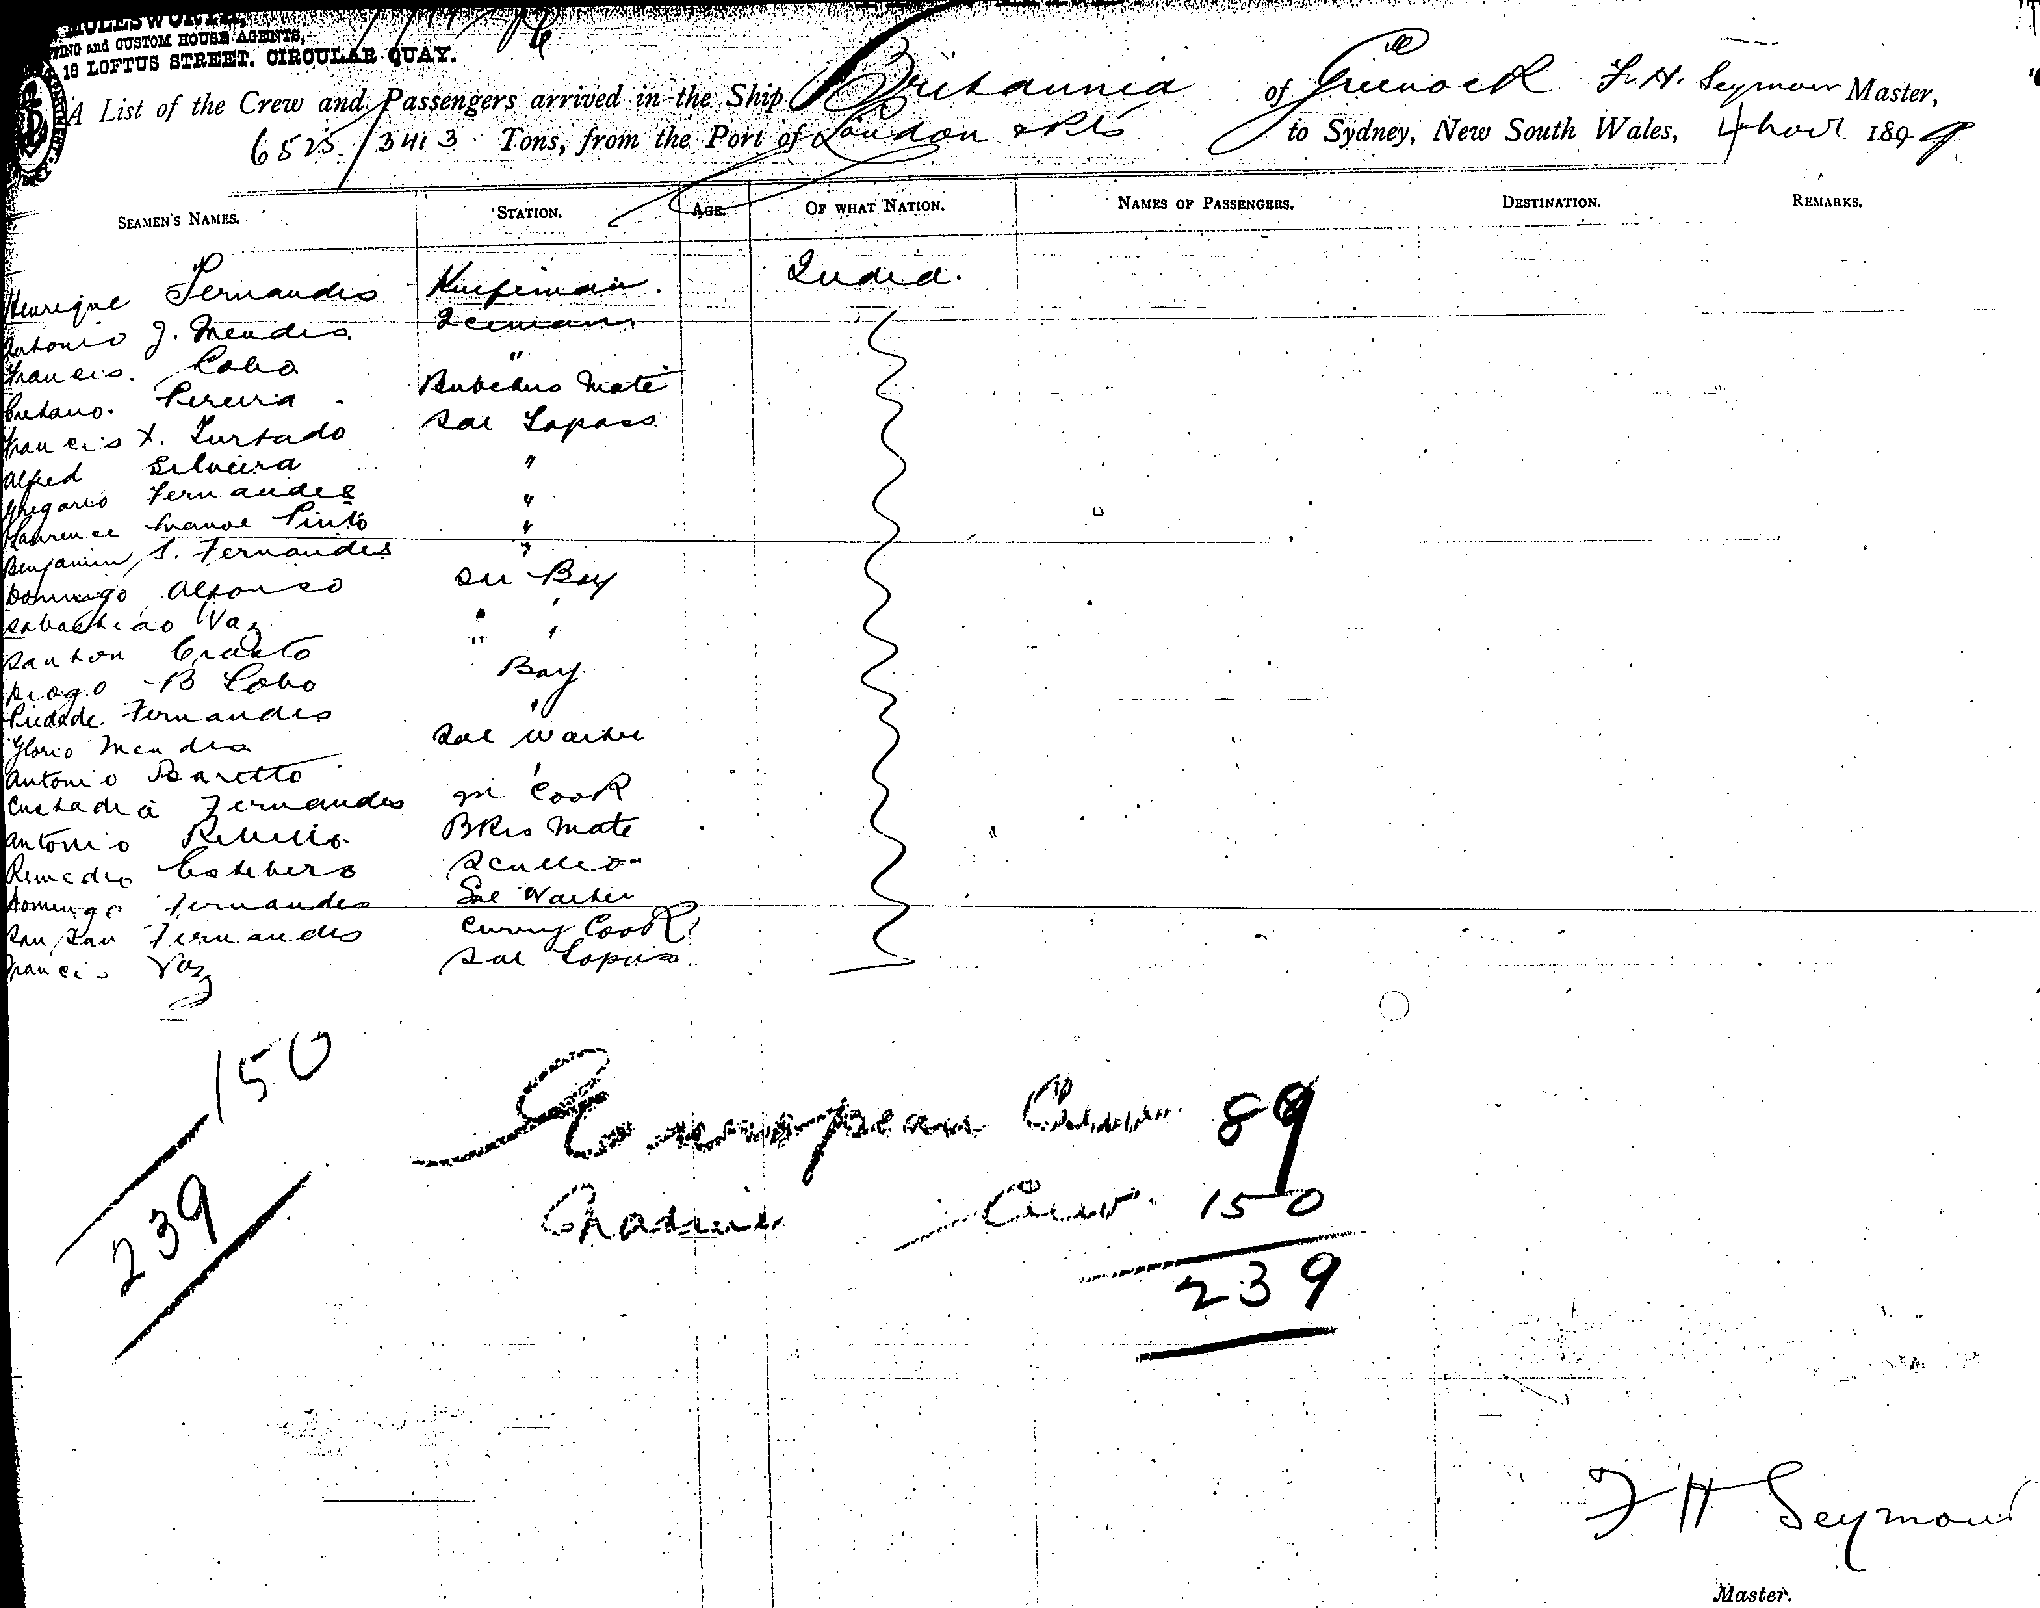 MOLESWORTH,
and CUSTOM HOUSE AGENTS,
18 LOFTUS STREET. CIRCULAR QUAY.
A List of the Crew and Passengers arrived in the Ship Britannia of Greenock F. H. Seymour Master,
6525/3413 Tons, from the Port of London & Pts to Sydney, New South Wales, 4 Novr 1899
SEAMEN'S NAMES. STATION. AGE. OF WHAT NATION. NAMES OF PASSENGERS. DESTINATION. REMARKS.
Henrique Fernandes India.
Antonio J. Mendes
Francis. Lobo "
Caetano. Pereira Butchers Mate
Francis X. Furtado Sal Topass
Alfred Silveira "
Gregario Fernandes "
Laurence Pinto "
Benjamin S. Fernandes "
Domingo Alfonso Boy
Sabastiao Vaz " "
Santon Crasto " "
Diogo B Lobo Boy
Piedade Fernandes "
Glorio Mendes Sal Washer
Antonio Baretto "
Custadia Fernandes Cook
Antonio Rebello Bkrs Mate
Remedio
Domingo Fernandes Sal Washer
San San Fernandes Curry Cook
Francis Vaz Sal Topass
150
239
European Crew 89
Native Crew 150
239
F H Seymour
Master.